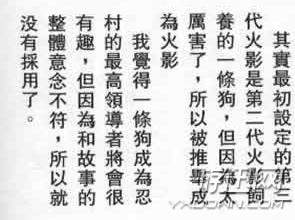 其實最初設定的第三
代火影是第二代火影飼
養的一條狗，但因為太
厲害了，所以被推專成
為火影
我覺得一條狗成為忍
村的最高領導者將會很
有趣，但因為和故事的
整體意念不符，所以就
没有採用了。